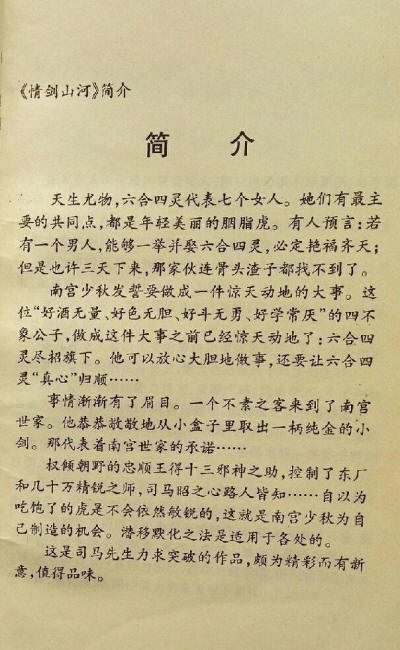 《情剑山河》简介
简 介
天生尤物，六合四灵代表七个女人。她们有最主
要的共同点，都是年轻美丽的胭脂虎。有人预言：若
有一个男人，能够一举并娶六合四灵，必定艳福齐天；
但是也许三天下来，那家伙连骨头渣子都找不到了。
南宫少秋发誓要做成一件惊天动地的大事。这
位“好酒无量、好色无胆、好斗无勇、好学常厌”的四不
象公子，做成这件大事之前已经惊天动地了：六合四
灵尽招旗下。他可以放心大胆地做事，还要让六合四
灵“真心”归顺……
事情渐渐有了眉目。一个不素之客来到了南宫
世家。他恭恭敬敬地从小盒子里取出一柄纯金的小
剑。那代表着南宫世家的承诺……
权倾朝野的忠顺王得十三邪神之助，控制了东厂
和几十万精锐之师，司马昭之心路人皆知……自以为
吃饱了的虎是不会依然敏锐的，这就是南宫少秋为自
己制造的机会。潜移默化之法是适用于各处的。
这是司马先生力求突破的作品，颇为精彩而有新
意，值得品味。